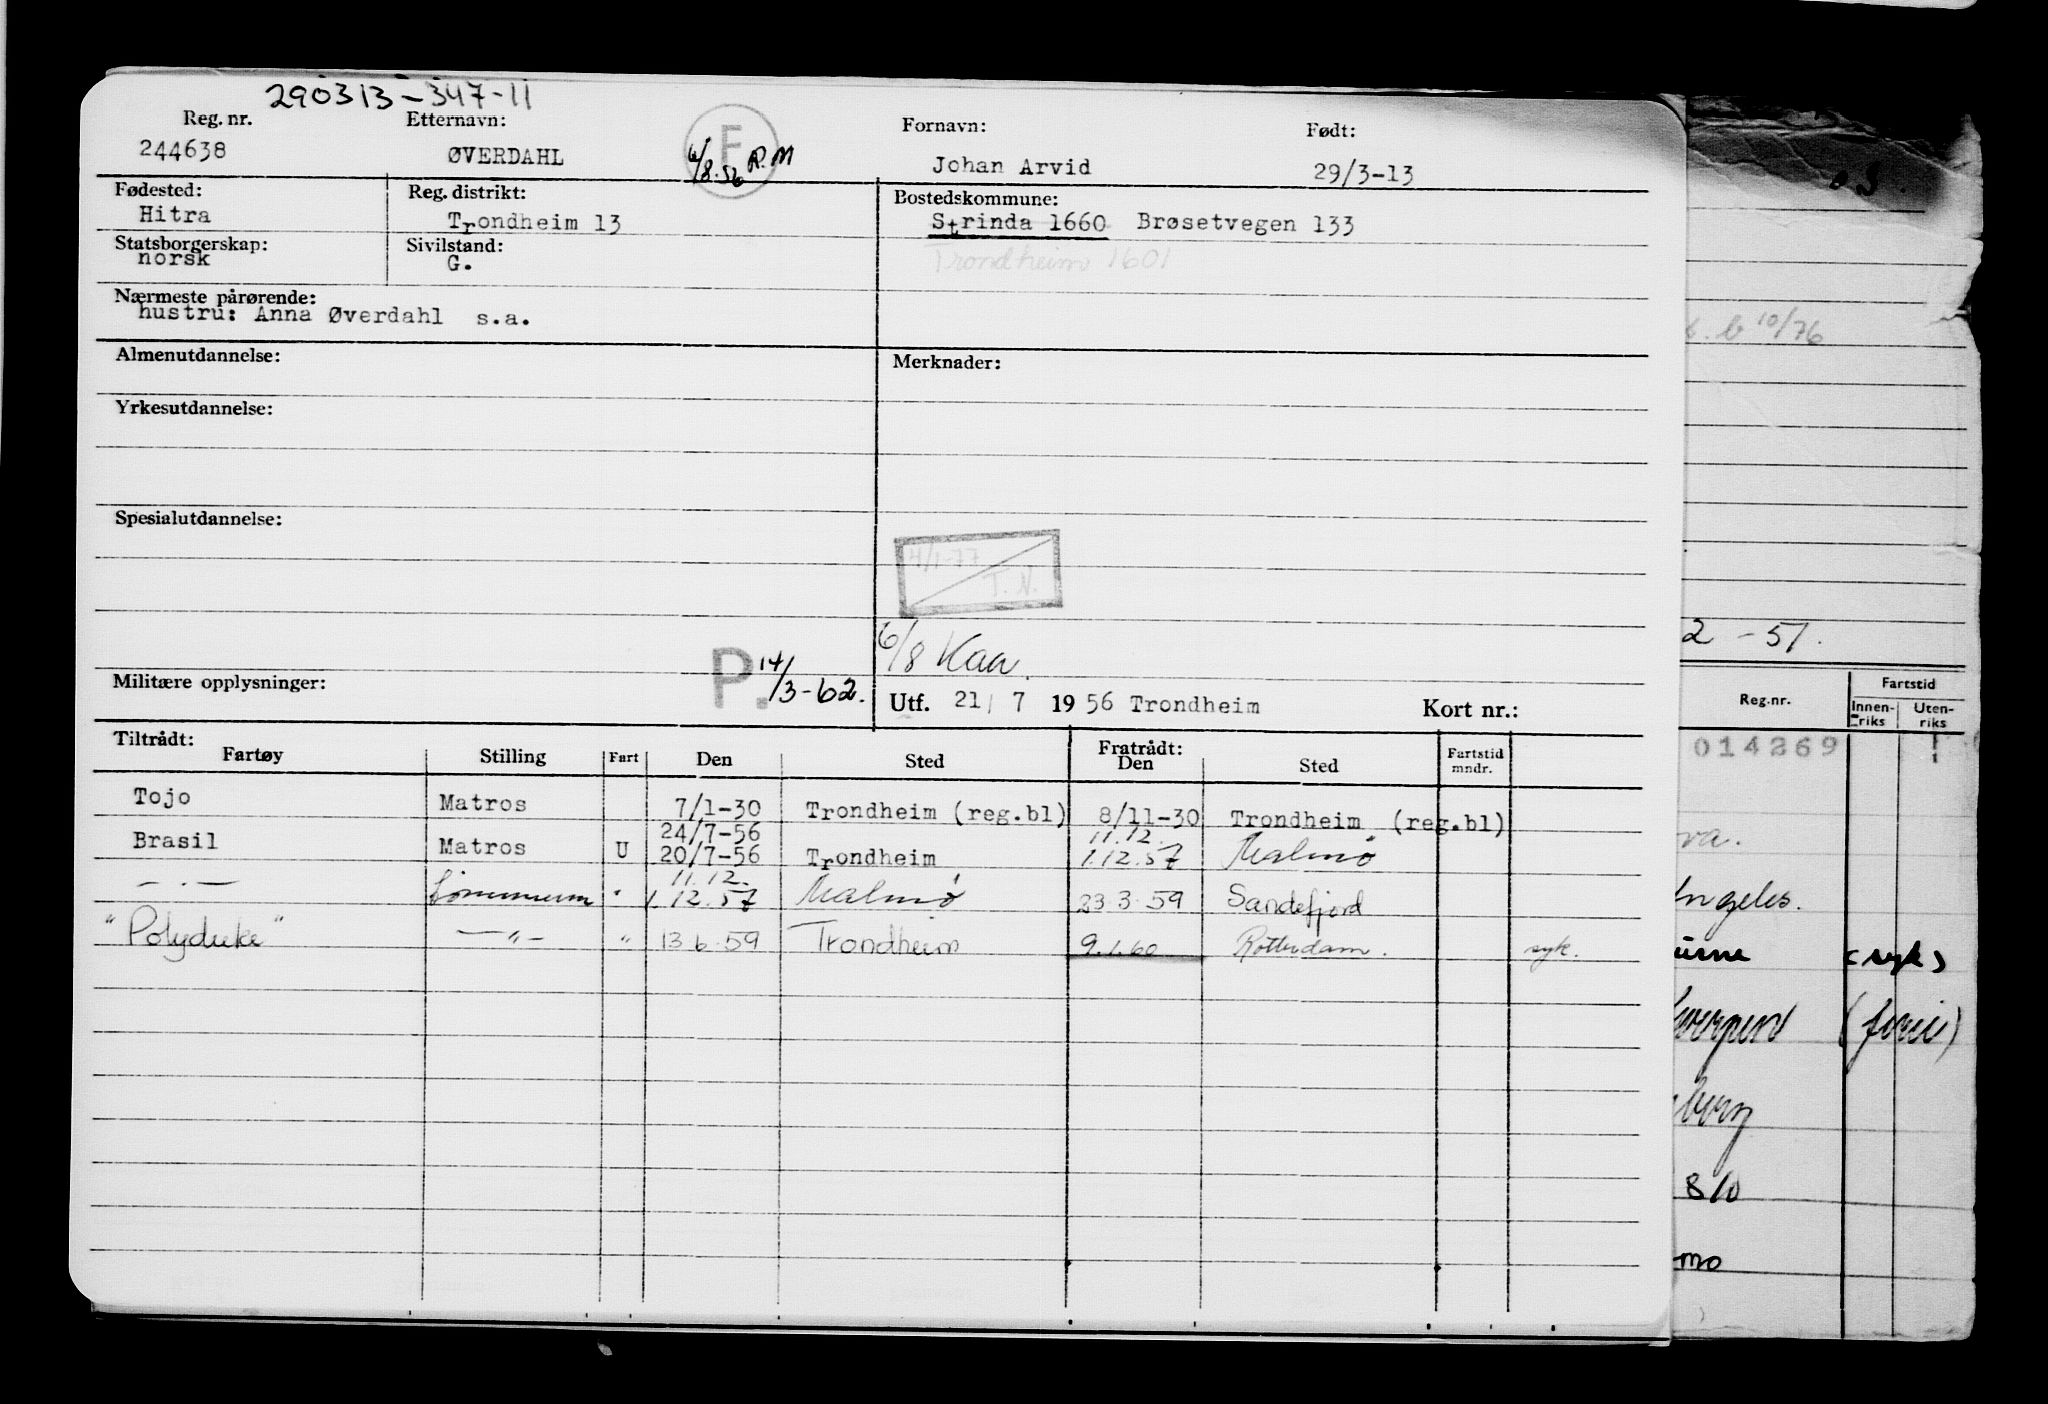 290313-347-11
Reg. nr. Etternavn: Fornavn: Født:
244638 ØVERDAHL F 6/8.56 R.M Johan Arvid 29/3-13
Fødested: Reg. distrikt: Bostedskommune:
Hitra Trondheim 13 Strinda 1660 Brøsetvegen 133
Statsborgerskap: Sivilstand: Trondheim 1601
norsk G.
Nærmeste pårørende:
hustru: Anna Øverdahl s.a.
Almenutdannelse: Merknader:
Yrkesutdannelse:
Spesialutdannelse:
4/1-77
T. N.
6/8 Kaa.
Militære opplysninger: P. 14/3-62. Utf. 21/ 7 1956 Trondheim Kort nr.:
Tiltrådt: Fratrådt:
Fartøy Stilling Fart Den Sted Den Sted Fartstid mndr.
Tojo Matros 7/1-30 Trondheim (reg.bl) 8/11-30 Trondheim (reg.bl)
24/7-56 11.12.
Brasil Matros U 20/7-56 Trondheim 1.12.57 Malmø
11.12.
— . — Tømmerm " 1.12.57 Malmø 23.3.59 Sandefjord
"Polyduke" — " — " 13.6.59 Trondheim 9.1.60 Rotterdam. syk.
b 10/76
2 - 51.
Reg.nr. Fartstid
Innen-riks Uten-riks
014269
va.
Angeles.
(syk)
(ferie)
borg
8/0
mo